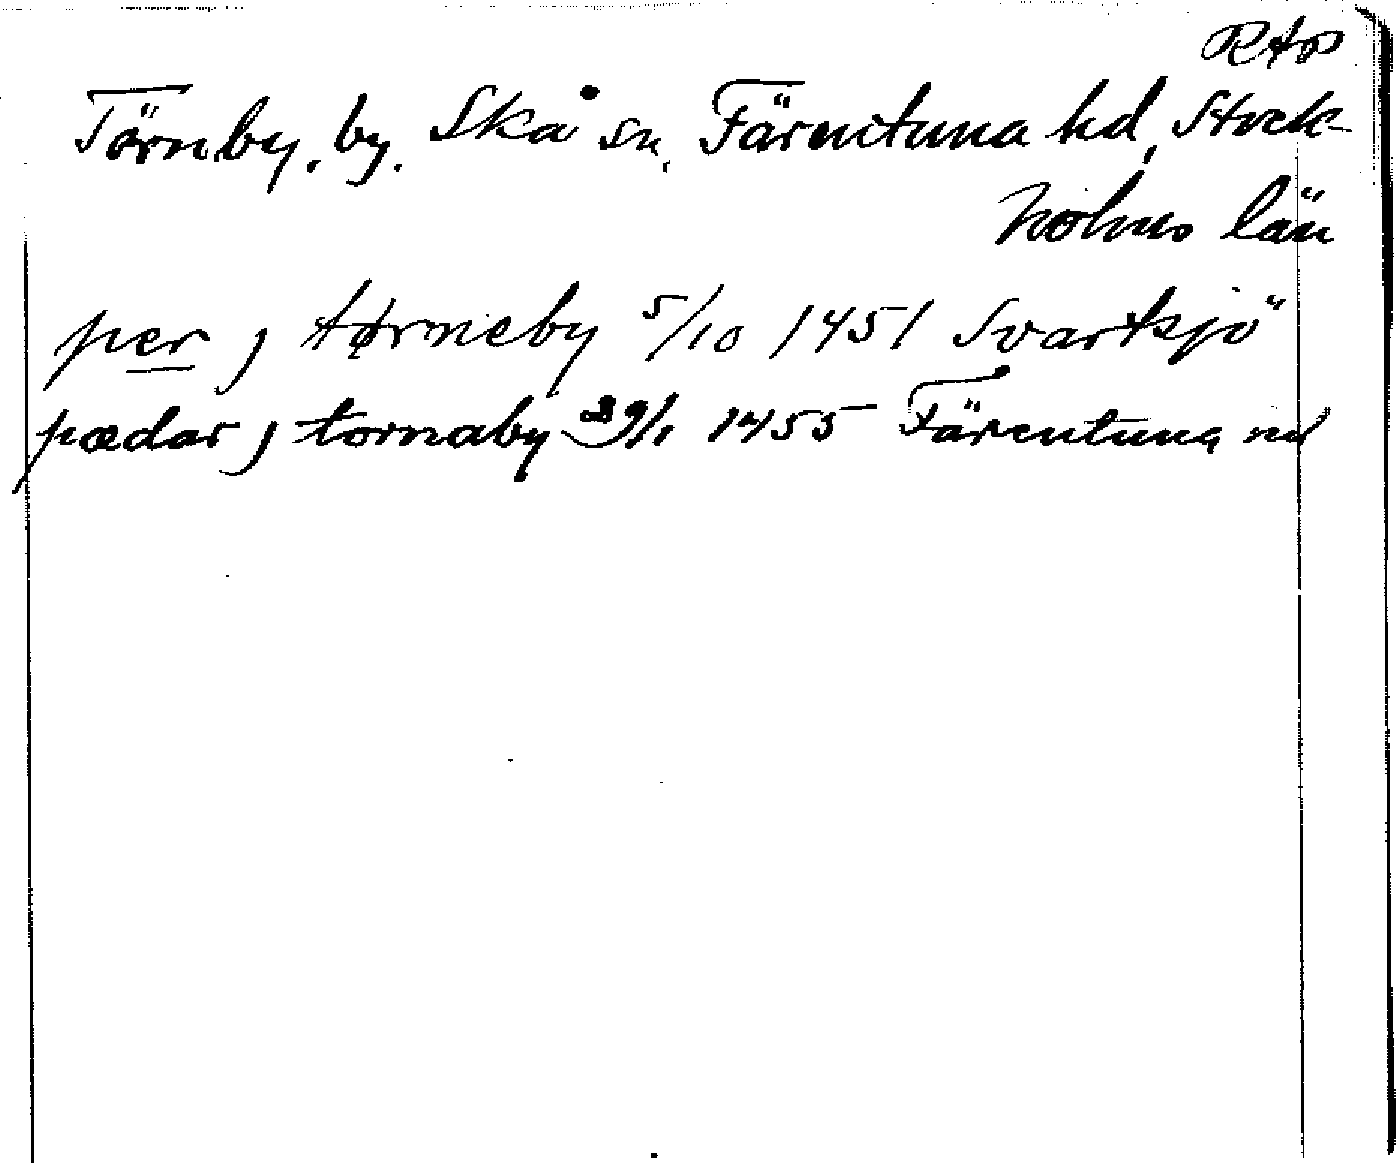 RAp
Törnby, by, Skå sn, Färentuna hd, Stock-
holms län
per j tørneby 5/10 1451 Svartsjö
pædar j tornaby 29/1 1455 Färentuna hd